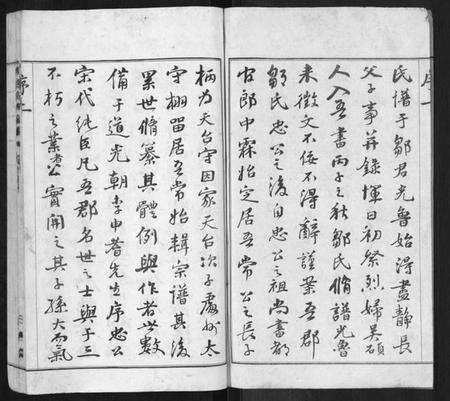 序一
民譜于鄒君光魯始得盡靜長
父子事并錄惲日初祭烈婦吳碩
人入吾書丙子之秋鄒氏脩譜光魯
来徵文不佞不得辭謹案吾郡
鄒氏忠公之後自忠公之祖尚書都
官郎中霖始定居吾常公之長子
柄为天台守因家天台次子處州太
守栩留居吾常始輯宗譜其後
累世脩纂其體例與作者世數
備于道光朝李申耆先生序忠公
宋代純臣凡吾郡名世之士與于三
不朽之業者公實開之其子孫大而氣
序一